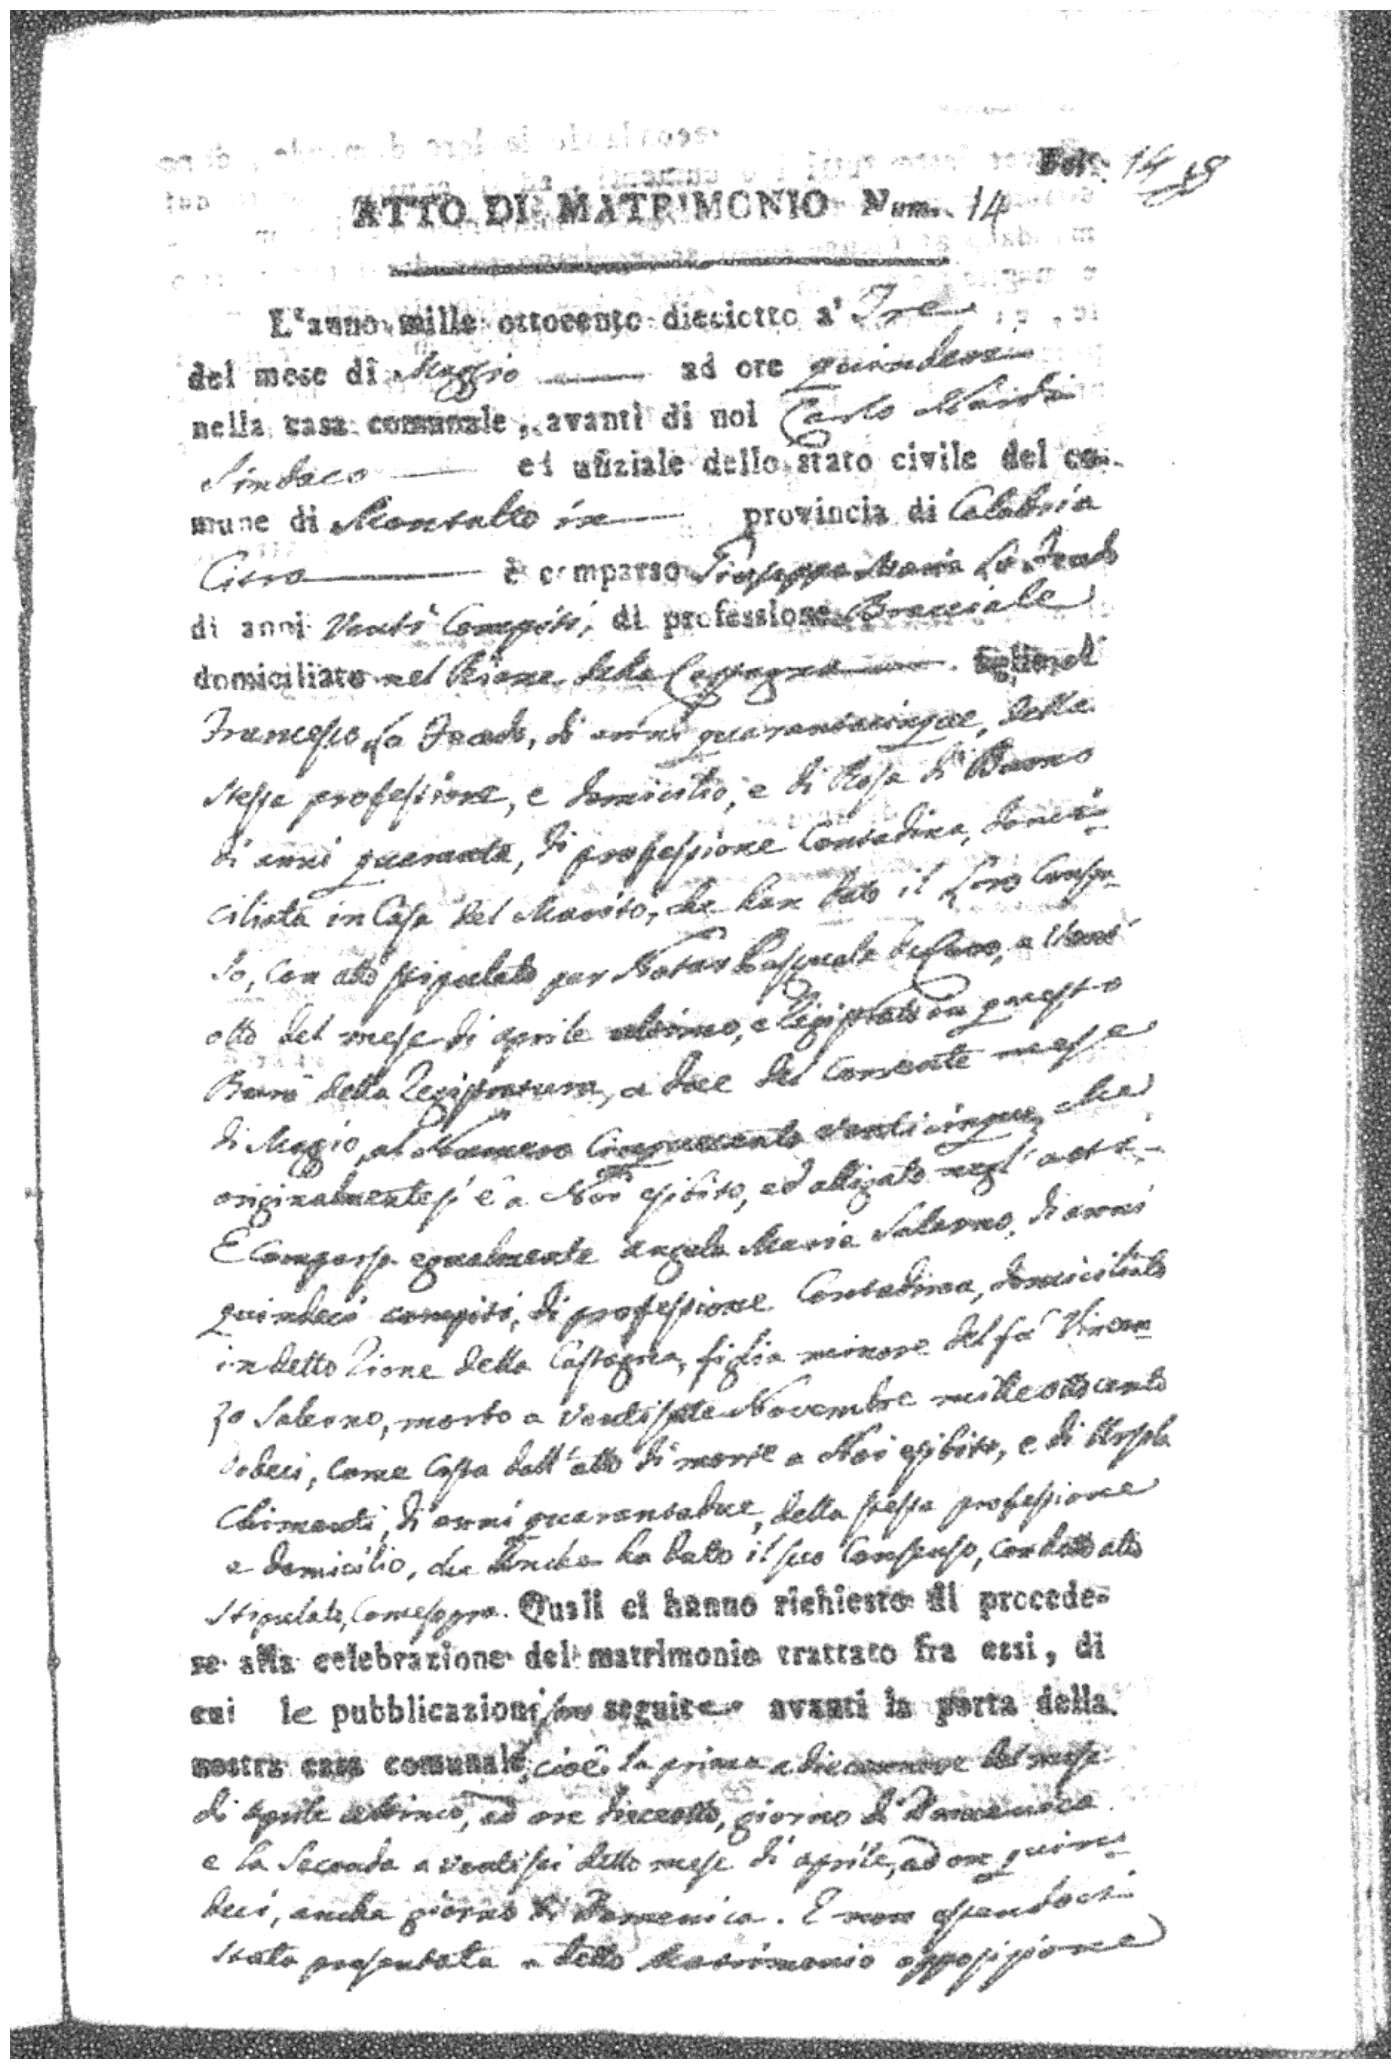 Fol. 14
ATTO DI MATRIMONIO Num. 14
L'anno mille ottocento dieciotto a' Tre
del mese di Maggio ad ore quindeci
nella casa comunale, avanti di noi Carlo
Sindaco ed ufiziale dello stato civile del co-
mune di Montalto in provincia di Calabria
Citra è comparso Giuseppe Maria Lo
di anni Venti Compiti, di professione Bracciale
domiciliato nel Rione della Castagna figlio di
Francesco Lo di anni quarantacinque, della
stessa professione, e domicilio, e di Rosa di
di anni quaranta, di professione Contadina, domi-
ciliata in Casa del Marito, che han dato il Loro Consen-
so, con atto stipulato per Notar Pasquale a Venti
otto del mese di aprile ultimo, e Registrato in questo
della Registratura, a due del corrente mese
di Maggio, al Numero Cinquecento venticinque, che
originalmente si è a Noi esibito, ed alligato negl' atti.
E Comparsa egualmente Angela Maria Salerno, di anni
quindeci compiti, di professione Contadina, domiciliata
in detto Rione della Castagna, figlia minore del fù Vincen-
zo Salerno, morto a ventisette Novembre mille ottocento
dodeci, come costa dall'atto di morte a Noi esibito, e di Ursola
Chimenti, di anni quarantadue, della stessa professione
e domicilio, che Anche ha dato il suo Consenso, con detto atto
Stipulato, Comesopra. Quali ci hanno richiesto di procede-
re alla celebrazione del matrimonio trattato fra essi, di
cui le pubblicazioni son seguite avanti la porta della
nostra casa comunale, cioè: la prima a diecennove del mese
di aprile ultimo, ad ore dieceotto, giorno di Domenica
e la Seconda a ventisei detto mese di aprile, ad ore quin-
deci, anche giorno di Domenica. E non essendoci
stata presentata a detto Matrimonio opposizione